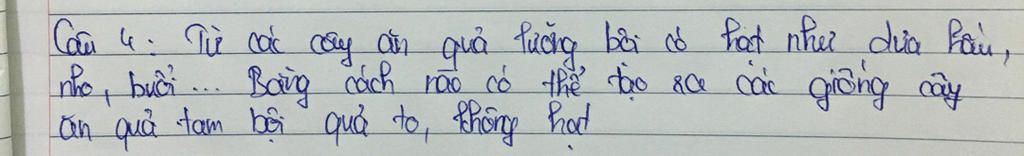 Câu 4: Từ các cây ăn quả lưỡng bội có hạt như dưa hấu,
nho, bưởi... Bằng cách nào có thể tạo ra các giống cây
ăn quả tam bội quả to, không hạt